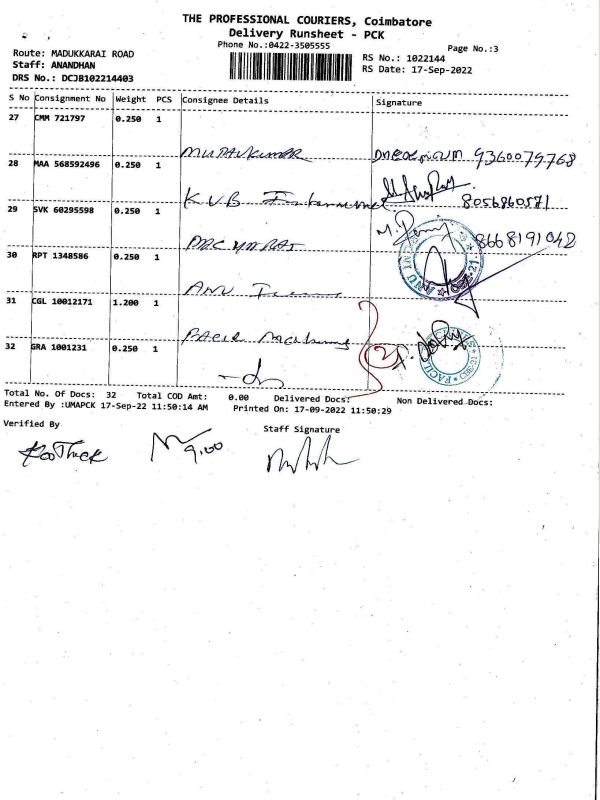 THE PROFESSIONAL COURIERS, Coimbatore
Delivery Runsheet - PCK
Phone No.:0422-3505555
Page No.:3
Route: MADUKKARAI ROAD
Staff: ANANDHAN
DRS No.: DCJB102214403
RS No.: 1022144
RS Date: 17-Sep-2022
S No Consignment No Weight PCS Consignee Details Signature
27 CMM 721797 0.250 1
9360079768
28 MAA 568592496 0.250 1
K.V.B
8056860571
29 SVK 60295598 0.250 1
8668191042
30 RPT 1348586 0.250 1
31 CGL 10012171 1.200 1
32 GRA 1001231 0.250 1
Total No. Of Docs: 32 Total COD Amt: 0.00 Delivered Docs: Non Delivered Docs:
Entered By :UMAPCK 17-Sep-22 11:50:14 AM Printed On: 17-09-2022 11:50:29
Verified By
Staff Signature
9.00